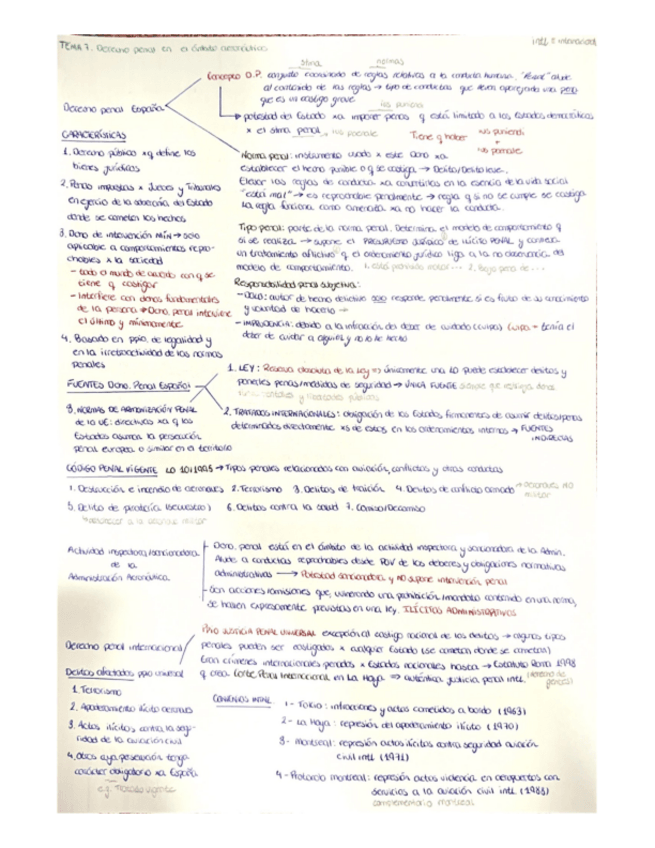 TEMA 7. Derecho penal en el ámbito aeronáutico
intl. e interacción
Derecho penal España
Concepto D.P. conjunto coordinado de reglas relativas a la conducta humana. "Penal" alude
al contenido de las reglas → tipo de conductas que deben aparejada una PED
que es un castigo grave
ius puniendi
potestad del Estado xa imponer penas q está limitado a los Estados democráticos
x el stma penal
Tiene q haber
ius puniendi
ius poenale
CARACTERÍSTICAS
1. Derecho público xq define los
bienes jurídicos
2. Penas impuestas x Jueces y Tribunales
en ejercicio de la soberanía del Estado
donde se cometan los hechos
3. Dcho de intervención MÍN → solo
aplicable a comportamientos repro-
chables x la sociedad
- todo el mundo de acuerdo con q se
tiene q castigar
- Interfiere con dchos fundamentales
de la persona → Dcho. penal interviene
el último y mínimamente
4. Basado en ppio. de legalidad y
en la irretroactividad de las normas
penales
Norma penal: instrumento usado x este dcho xa
establecer el hecho punible o q se castiga → Delito/Delito leve.
Elevar las reglas de conducta xa convertirlas en la esencia de la vida social
"está mal" → es reprochable penalmente → regla q si no se cumple se castiga
La regla funciona como amenaza xa no hacer la conducta.
Tipo penal: parte de la norma penal. Determina el modelo de comportamiento q
si se realiza → supone el PRESUPUESTO JURÍDICO de ilícito PENAL y conlleva
un tratamiento aflictivo q el ordenamiento jurídico liga a la no observancia del
modelo de comportamiento. 1. está prohibido matar... 2. Bajo pena de...
Responsabilidad penal subjetiva:
- DOLO: autor de hecho delictivo solo responde penalmente si es fruto de su conocimiento
y voluntad de hacerlo
- IMPRUDENCIA: debido a la infracción del deber de cuidado (culpa) Culpa = tenía el
deber de cuidar a alguien y no lo he hecho
FUENTES Dcho. Penal Español
1. LEY: Reserva absoluta de la ley → únicamente una LO puede establecer delitos y
ponerles penas/medidas de seguridad → ÚNICA FUENTE siempre que restrinja dchos
fundamentales y libertades públicas
2. TRATADOS INTERNACIONALES: obligación de los Estados firmantes de asumir delitos/penas
determinados directamente xs de estos en los ordenamientos internos → FUENTES
INDIRECTAS
3. NORMAS DE ARMONIZACIÓN PENAL
de la UE: directivas xa q los
Estados asuman la persecución
penal europea o similar en el territorio
CÓDIGO PENAL VIGENTE LO 10/1995 → Tipos penales relacionados con aviación, conflictos y otras conductas
1. Destrucción e incendio de aeronaves 2. Terrorismo 3. Delitos de traición 4. Delitos de conflicto armado → aeronaves NO
militar
5. Delito de piratería (secuestro) 6. Delitos contra la salud 7. Comiso/Decomiso
Actividad inspectora/sancionadora
de la
Administración Aeronáutica.
- Dcho. penal está en el ámbito de la actividad inspectora y sancionadora de la Admin.
Alude a conductas reprochables desde PDV de los deberes y obligaciones normativas
administrativas → Potestad sancionadora y NO supone intervención penal
- Son acciones/omisiones que, vulnerando una prohibición/mandato contenido en una norma,
se hallen expresamente previstas en una ley, ILÍCITOS ADMINISTRATIVOS
Derecho penal internacional
PPIO JUSTICIA PENAL UNIVERSAL excepción al castigo nacional de los delitos → algunos tipos
penales pueden ser castigados x cualquier Estado (se cometan donde se cometan)
Eran crímenes internacionales penados x Estados nacionales hasta → Estatuto Roma 1998
q crea Corte Penal Internacional en La Haya → auténtica justicia penal intl.
Delitos afectados ppio universal
1. Terrorismo
2. Apoderamiento ilícito aeronaves
3. Actos ilícitos contra la segu-
ridad de la aviación civil
4. Otros cuya persecución tenga
carácter obligatorio xa España
e.g. Tratado vigente
CONVENIOS INTNAL.
1- Tokio: infracciones y actos cometidos a bordo (1963)
2- La Haya: represión del apoderamiento ilícito (1970)
3- Montreal: represión actos ilícitos contra seguridad aviación
civil intl (1971)
4- Protocolo montreal: represión actos violencia en aeropuertos con
servicios a la aviación civil intl (1988)
complementario montreal